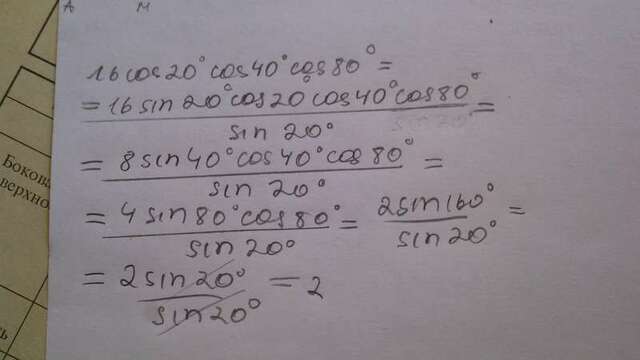 А м
16cos20°cos40°cos80° =
= 16sin20°cos20cos40°cos80° / sin20° =
= 8sin40°cos40°cos80° / sin20° =
= 4sin80°cos80° / sin20° = 2sin160° / sin20° =
= 2sin20° / sin20° = 2
Бокова
верхно